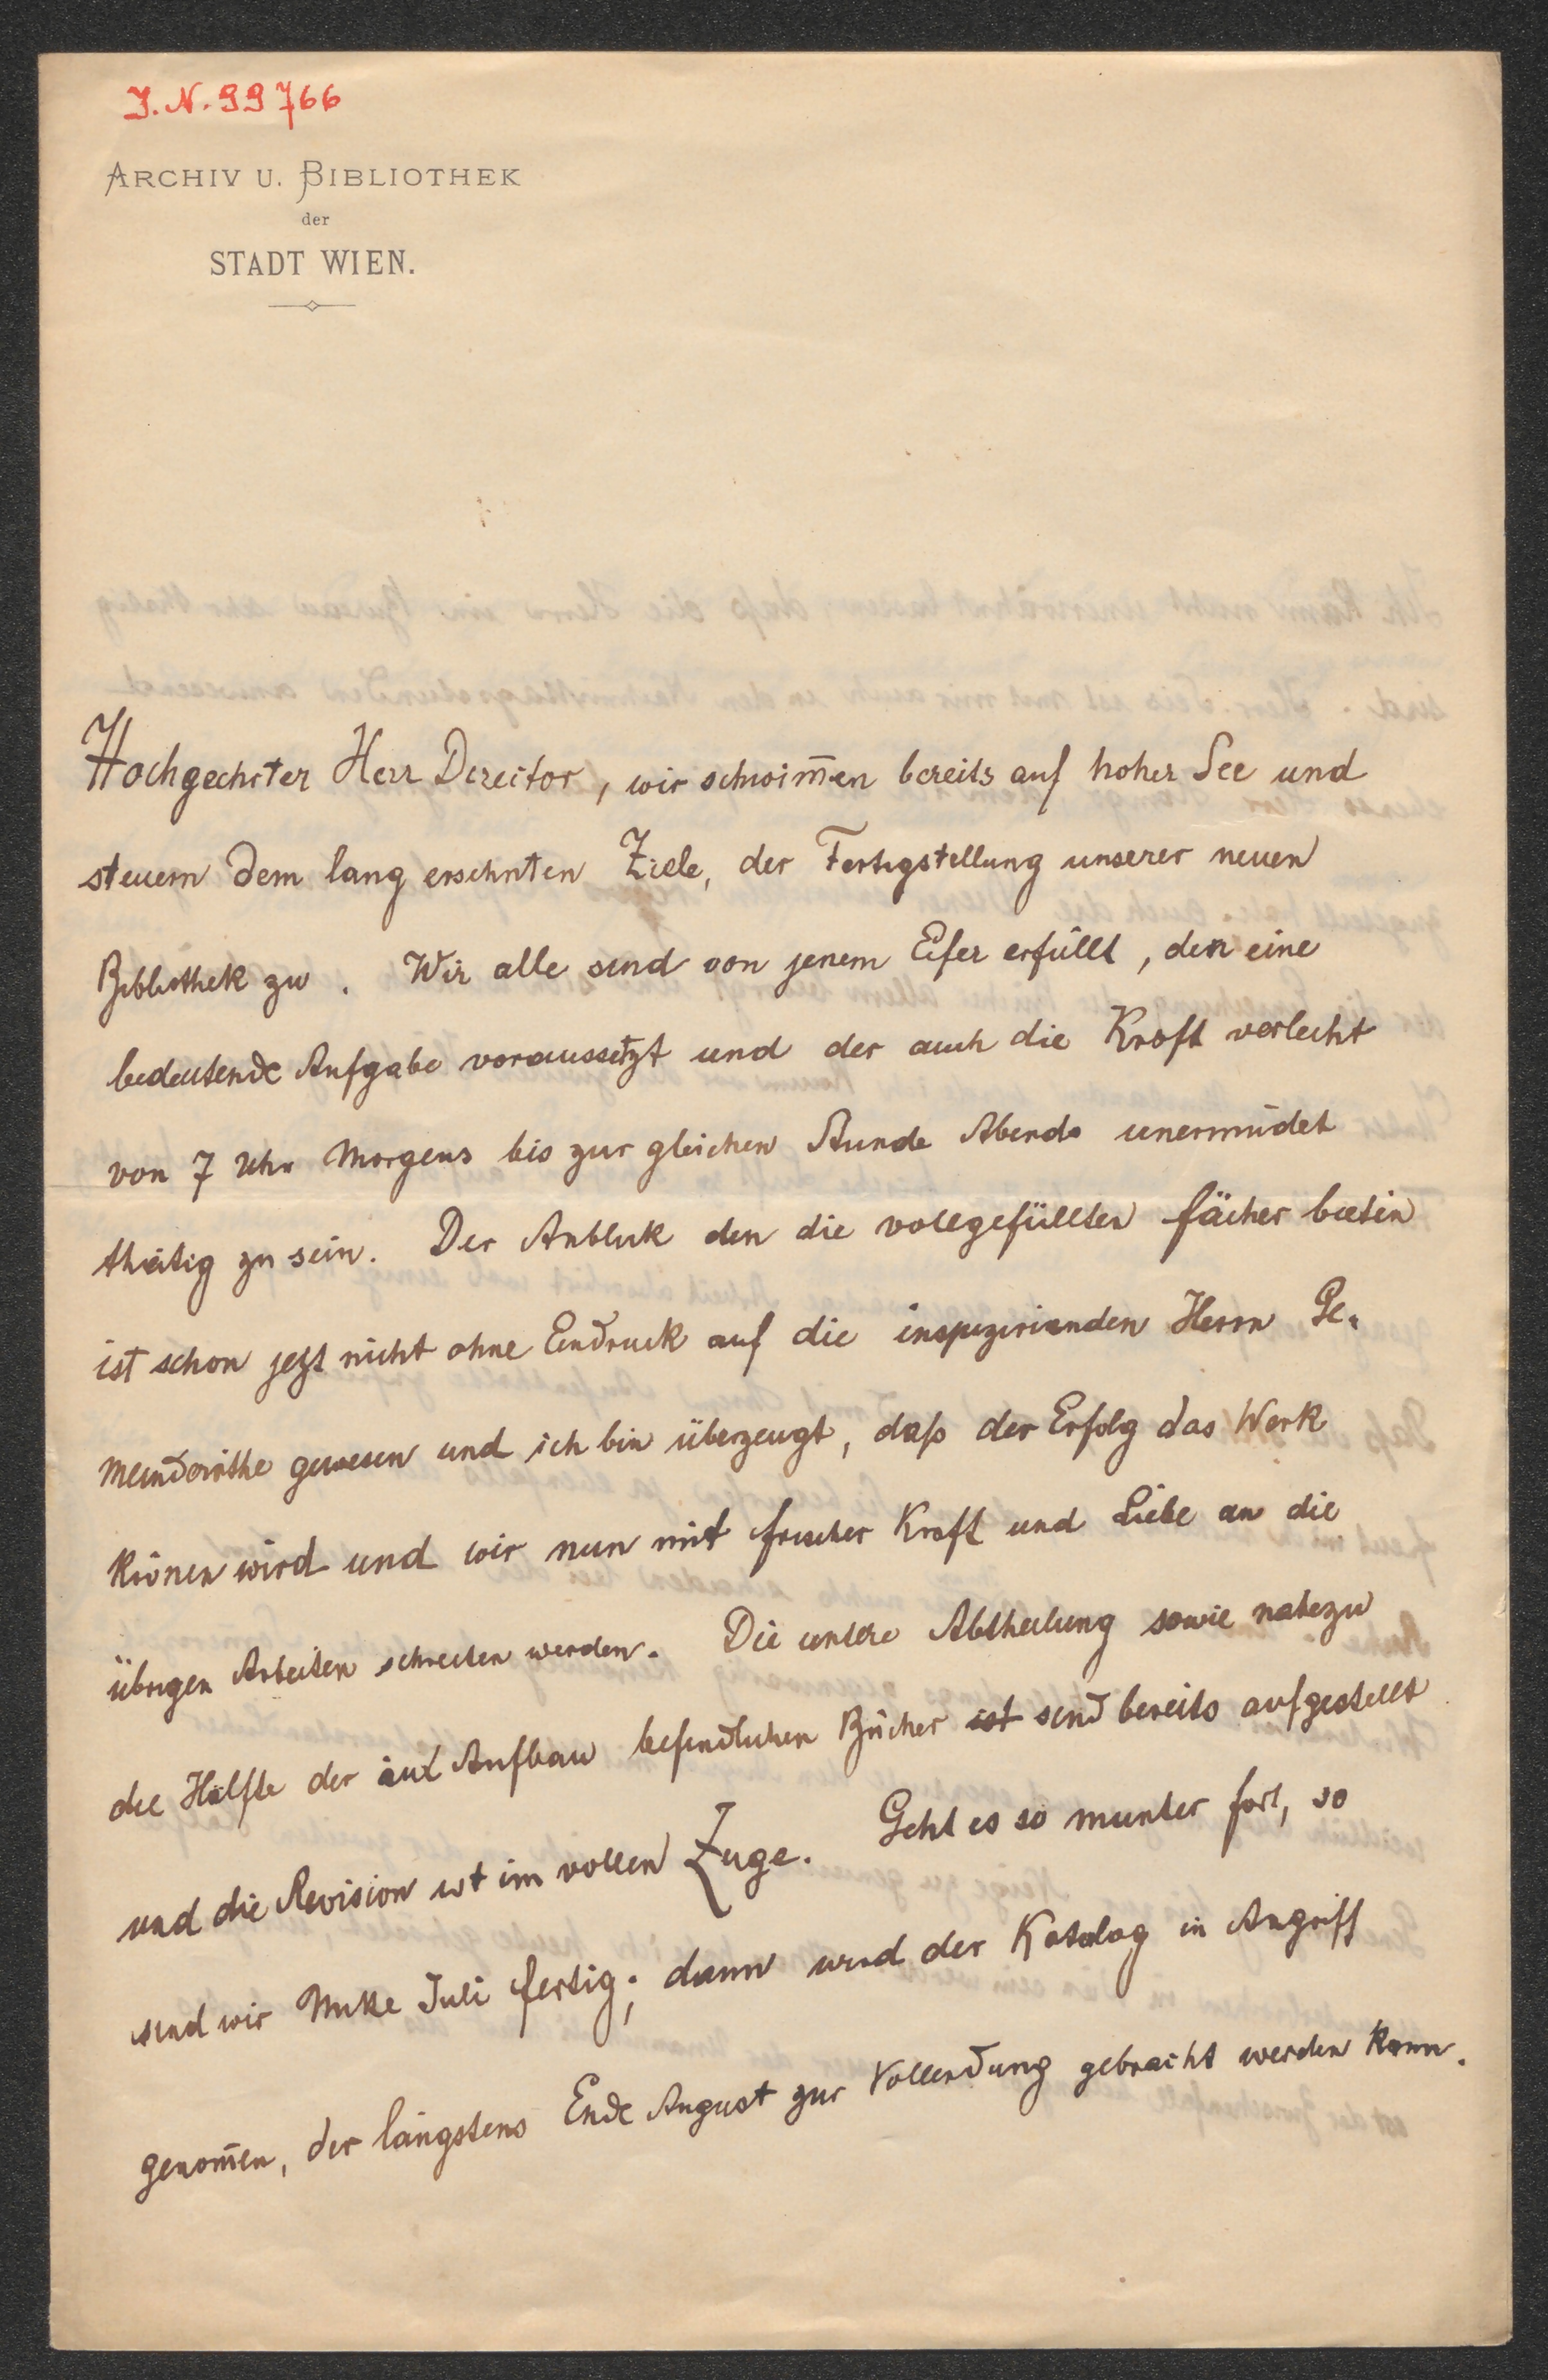 J. N. 99766
ARCHIV U. BIBLIOTHEK
der
STADT WIEN.
Hochgeehrter Herr Director, wir schwim̅en bereits auf hoher See und
steuern dem lang ersehnten Ziele, der Fertigstellung unserer neuen
Bibliothek zu. Wir alle sind von jenem Eifer erfüllt, den eine
bedeutende Aufgabe voraussetzt und der auch die Kraft verleiht
von 7 Uhr Morgens bis zur gleichen Stunde Abends unermüdet
thätig zu sein. Der Anblick den die vollgefüllten Fächer bieten
ist schon jetzt nicht ohne Eindruck auf die inspizirienden Herrn Ge-
meinderäthe gewesen und ich bin überzeugt, daß der Erfolg das Werk
krönen wird und wir nun mit frischer Kraft und Liebe an die
übrigen Arbeiten schreiten werden. Die untere Abtheilung sowie nahezu
die Hälfte der im Aufbau befindlichen Bücher ist sind bereits aufgestellt
und die Revision ist im vollen Zuge. Geht es so munter fort, so
sind wir Mitte Juli fertig; dann wird der Katalog in Angriff
genom̅en, der längstens Ende August zur Vollendung gebracht werden kann.